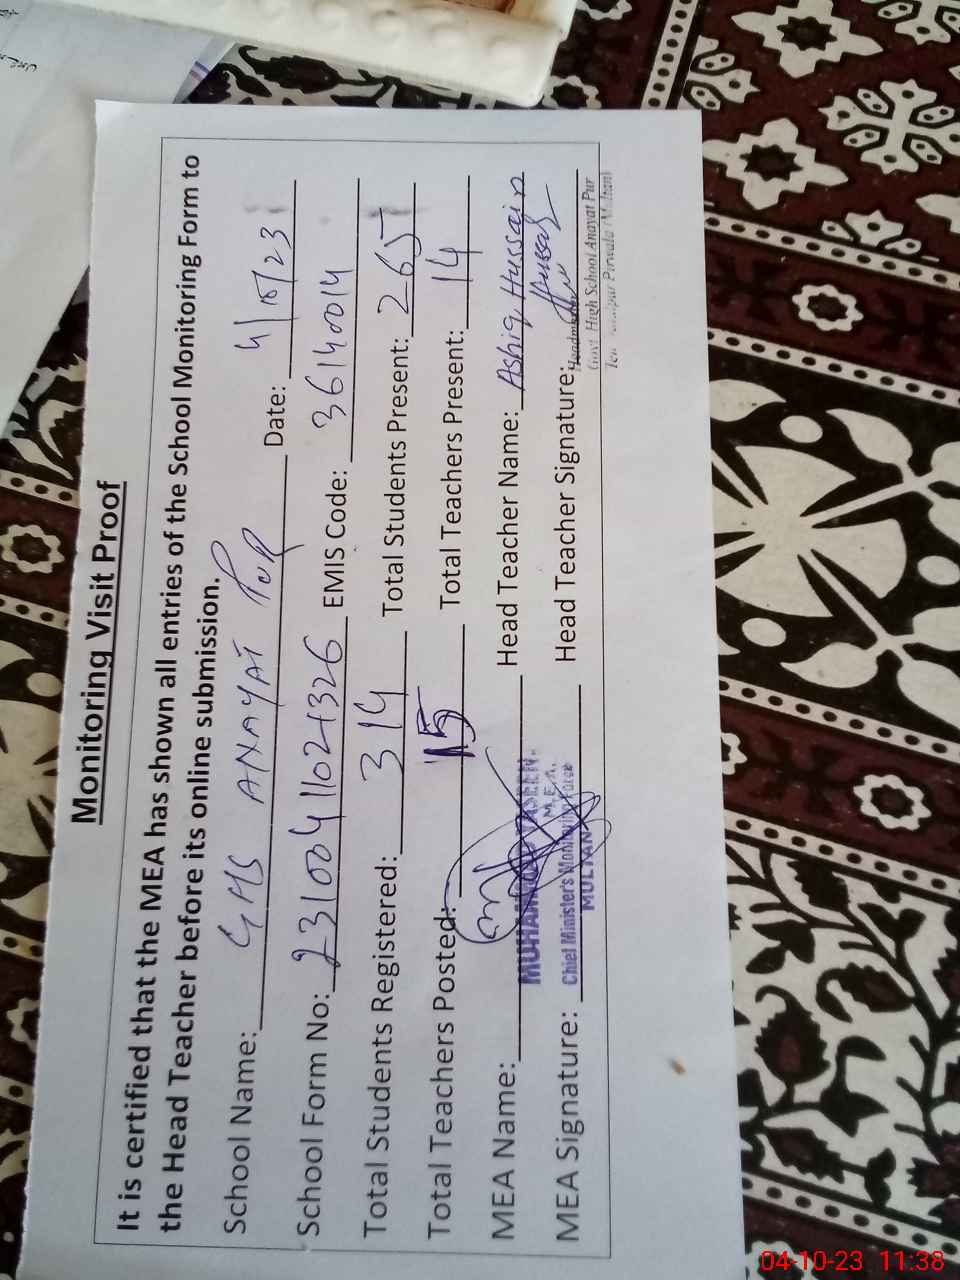 Monitoring Visit Proof
It is certified that the MEA has shown all entries of the School Monitoring Form to
the Head Teacher before its online submission.
School Name: GHS ANAYAT PUR Date: 4/10/23
School Form No: EMIS Code: 36140014
Total Students Registered: 314 Total Students Present: 265
Total Teachers Posted: 15 Total Teachers Present: 14
MEA Name: Head Teacher Name: Ashiq Hussain
MUHAMMAD YASEEN
M.E.A.
MEA Signature: Chief Minister's Monitoring Force Head Teacher Signature:
MULTAN
Headmaster
Govt High School Anayat Pur
Pirwala (Multan)
04-10-23 11:38